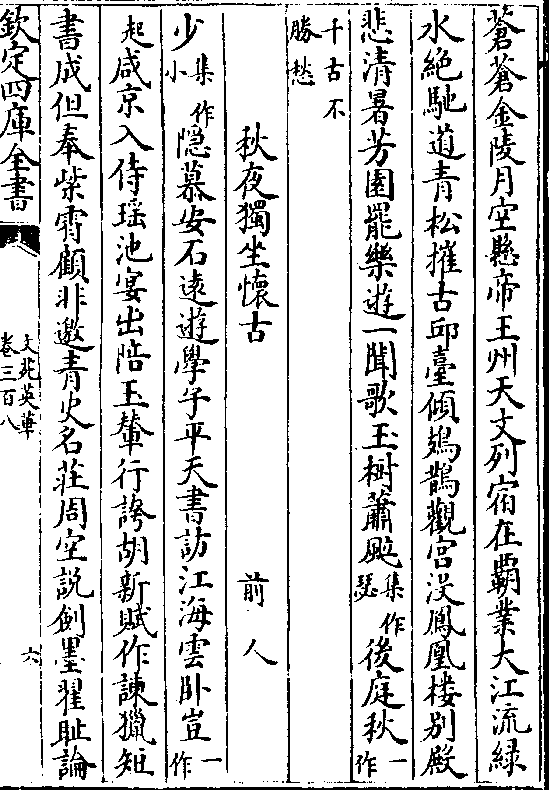 蒼蒼金陵月空懸帝王州天文列宿在覇業大江流緑
水絶馳道青松摧古邱臺傾鳷鵲觀宫没鳳凰楼别殿
悲清暑芳園罷樂遊一聞歌玉樹蕭颰集作瑟後庭秋一作
千古不勝愁
秋夜獨坐懷古
前人
少集作小隠慕安石遠遊學子平天書訪江海雲卧豈一作
起咸京入侍瑶池宴出陪玉輦行誇胡新賦作諫獵短
書成但奉紫霄顧非邀青史名莊周空説劍墨翟耻論
欽定四庫全書
文苑英華
卷三百八
六